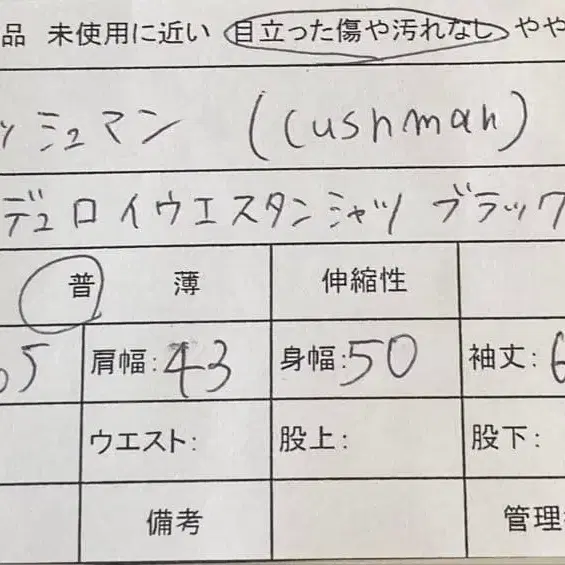 品 未使用に近い 目立った傷や汚れなし やや
ッシュマン (Cushman)
デュロイウエスタンシャツ ブラック
普 薄 伸縮性
65 肩幅:43 身幅:50 袖丈:6
ウエスト: 股上: 股下:
備考 管理